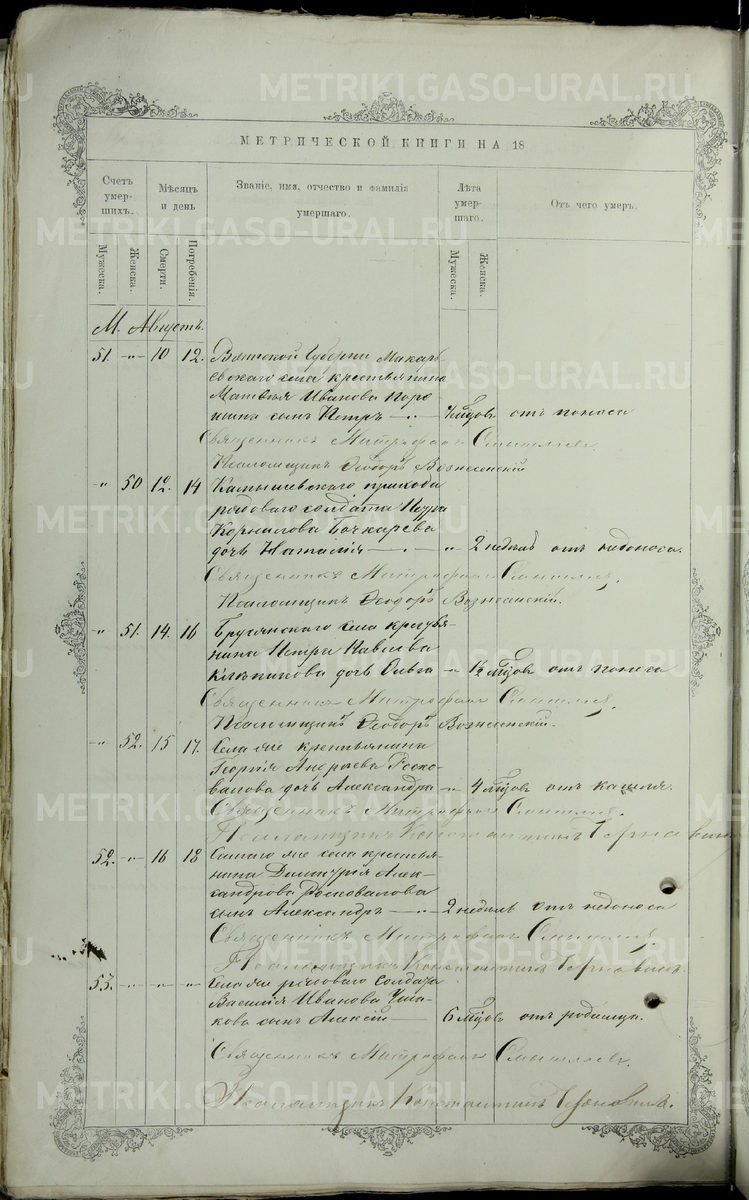 METRIKI.GASO-URAL.RU
МЕТРИЧЕСКОЙ КНИГИ НА 18
Счетъ умер-шихъ.
Мѣсяцъ и день
Званіе, имя, отчество и фамилія умершаго.
Лѣта умер-шаго.
Отъ чего умеръ.
Мужеска.
Женска.
Смерти.
Погребенія.
Мужеска.
Женска.
М. Августъ.
51. -"- 10 12. Вятской Губерніи Макарь-
евскаго села крестьянина
Матвѣя Иванова
сынъ Петръ мѣсяцовъ отъ поноса
Священникъ Митрофанъ Смышляевъ.
Псаломщикъ Ѳеодоръ Вознесенскій
" 50 12 14 Камышевскаго прихода
рядоваго солдата Петра
Корнилова Бочкарева
дочь Наталія — " 2 недѣль отъ недоноса.
Священникъ Митрофанъ Смышляевъ.
Псаломщикъ Ѳеодоръ Вознесенскій.
" 51. 14. 16 Бруянскаго села крестья-
нина Петра Павлова
дочь Ольга " 1½ мѣсяцовъ отъ поноса
Священникъ Митрофанъ Смышляевъ.
Псаломщикъ Ѳеодоръ Вознесенскій.
" 52. 15 17. Села же крестьянина
Георгія Андреева Роско-
валова дочь Александра " 4 мѣсяцовъ отъ кашля.
Священникъ Митрофанъ Смышляевъ.
Псаломщикъ Константинъ Чернавинъ
52. -"- 16 18 же села крестья-
нина Димитрія Алек-
сандрова Росковалова
сынъ Александръ — 2 недѣль отъ недоноса
Священникъ Митрофанъ Смышляевъ.
Псаломщикъ Константинъ Чернавинъ.
53. -"- " " Села же рядоваго Солдата
Василія Иванова Уша-
кова сынъ Алексій — 6 мѣсяцовъ отъ родимца.
Священникъ Митрофанъ Смышляевъ.
Псаломщикъ Константинъ Чернавинъ.